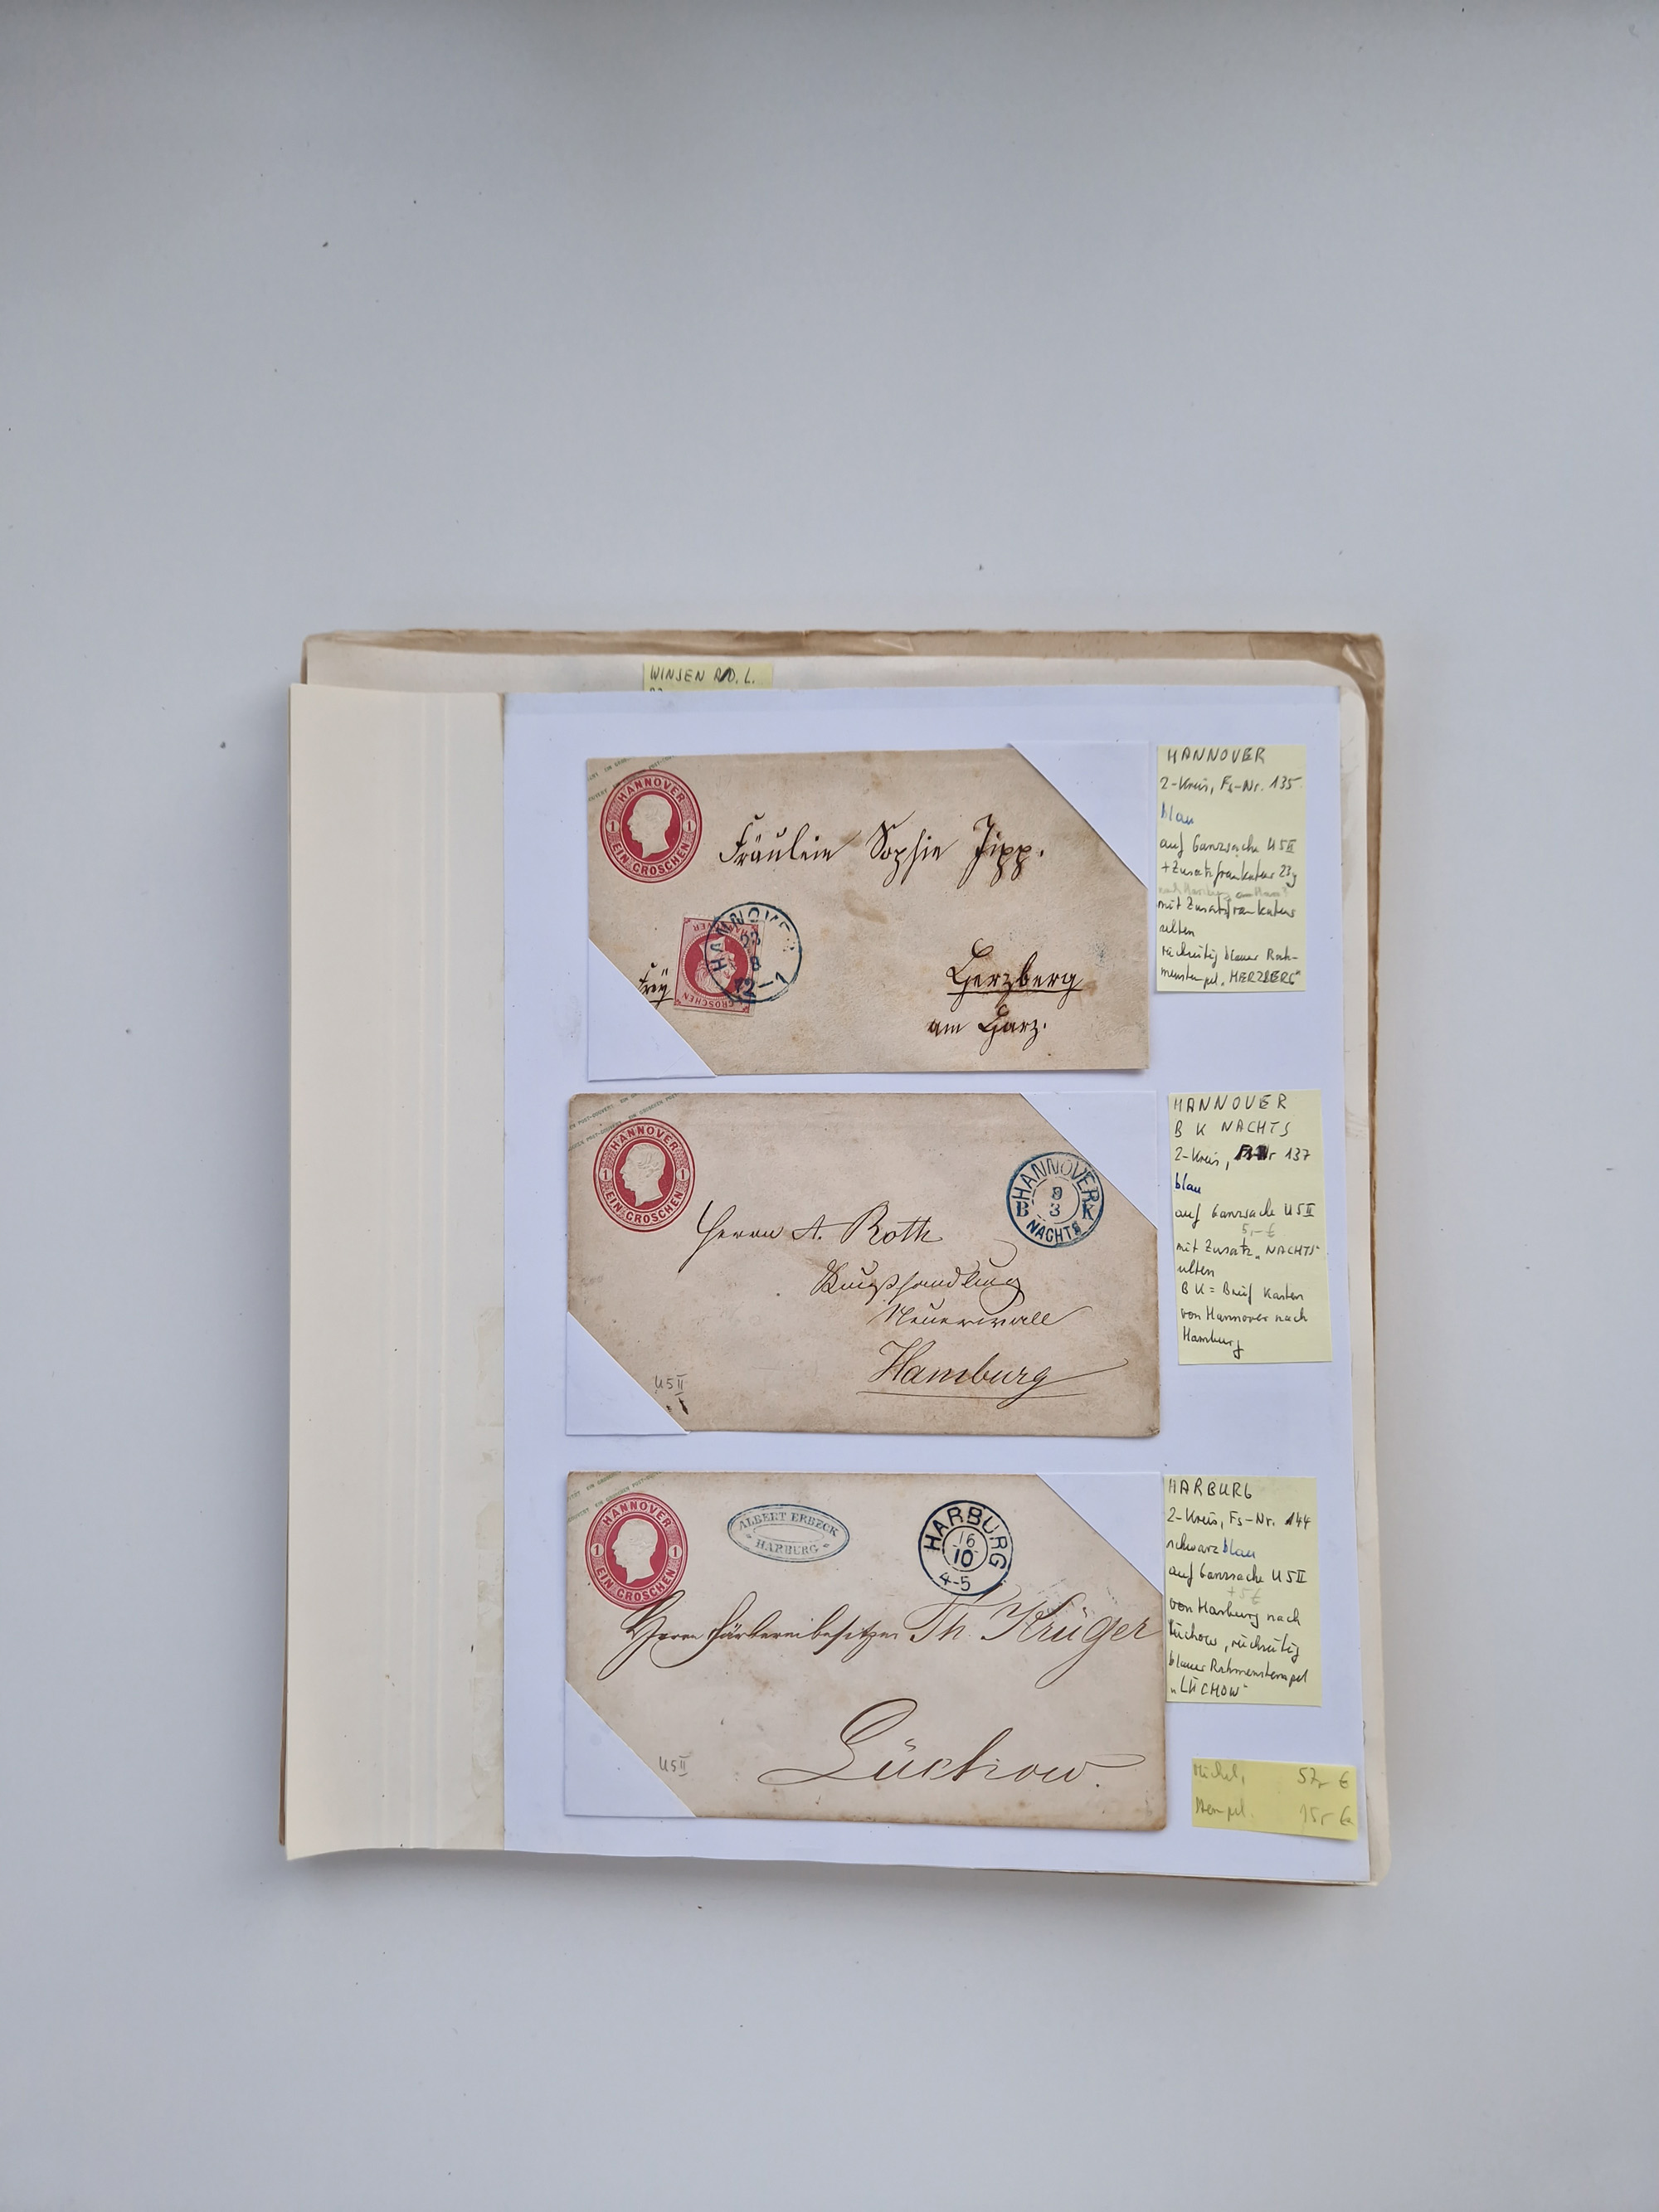 WINSEN A/D. L.
HANNOVER
1 1
EIN GROSCHEN
Fräulein Sophie Tipp.
HANNOVER
23
8
12-1
GROSCHEN
frey
Herzberg
am Harz.
HANNOVER
2-Kreis, Fs-Nr. 135
blau
auf Ganzsache U5II
+ Zusatzfrankatur 23y
mit Zusatzfrankatur
selten
rückseitig blauer Rah-
menstempel „HERZBERG"
HANNOVER
1 1
EIN GROSCHEN
HANNOVER
B 9 K
3
NACHTS
Herrn A. Roth
Neuerwall
Hamburg
U5II
HANNOVER
B K NACHTS
2-Kreis, Nr 137
blau
auf Ganzsache U5II
5,- €
mit Zusatz „NACHTS"
selten
BK = Brief Kasten
von Hannover nach
Hamburg
HANNOVER
1 1
EIN GROSCHEN
ALBERT ERBECK
HARBURG
HARBURG
16
10
4-5
Herrn Färbereibesitzer Th. Krüger
Lüchow.
U5II
HARBURG
2-Kreis, Fs-Nr. 144
schwarzblau
auf Ganzsache U5II
+5 €
von Harburg nach
Lüchow, rückseitig
blauer Rahmenstempel
„LÜCHOW"
Michel, 57,- €
Stempel. 15,- €